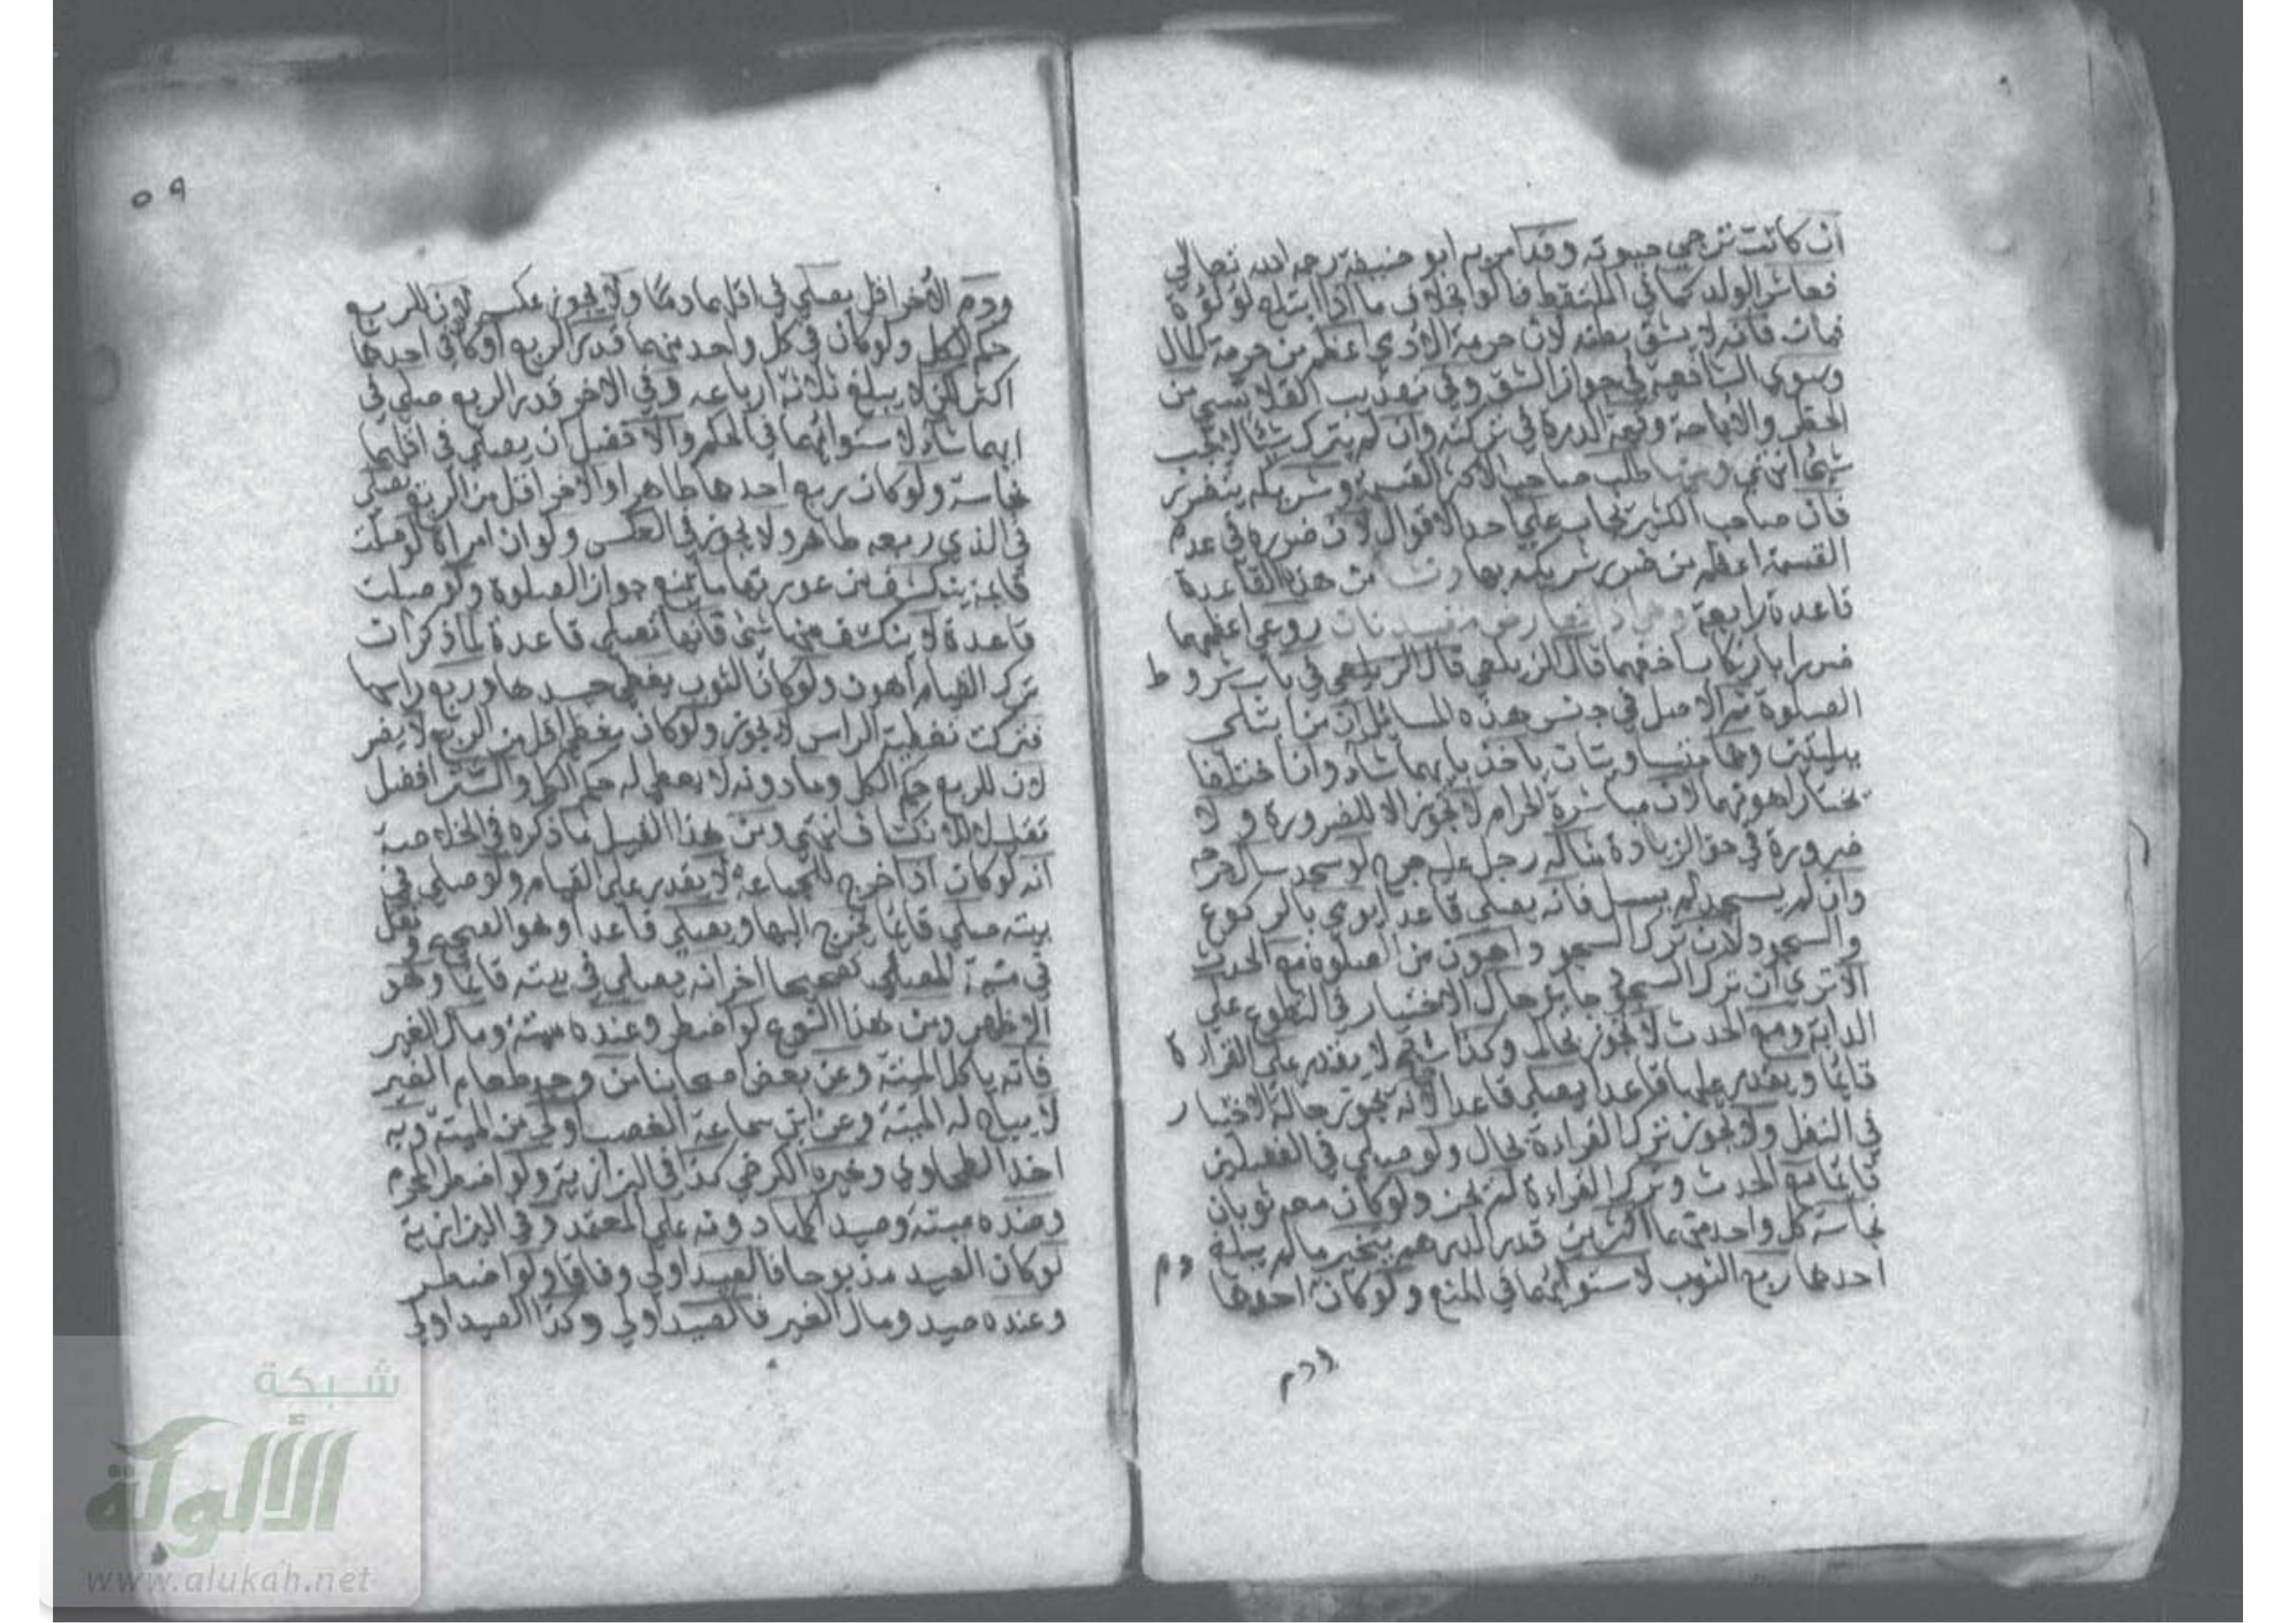 ان كانت ترجي حيوته وقد امر به ابو حنيفة رحمه الله تعالى
فعاش الولد كما في الملتقط قالوا بخلاف ما اذا ابتلع لؤلؤة
فمات فانه لا يشق بطنه لان حرمة الادمي اعظم من حرمة المال
وسوى الشافعية في جواز الشق وفي تهذيب القلانسي من
الحظر والاباحة وقيمة الدرة في تركته وان لم يترك شيئا لا يجب
شيئ انتهى ومنها طلب صاحب الاكثر القسمة وشريكه يتضرر
فان صاحب الكثير يجاب على احد الاقوال لان ضرره في عدم
القسمة اعظم من ضرر شريكه بها من هذه القاعدة
قاعدة رابعة اذا تعارض مفسدتان روعي اعظمهما
ضررا بارتكاب اخفهما قال الزيلعي في باب شروط
الصلوة ثم الاصل في جنس هذه المسائل ان من ابتلى
ببليتين وهما متساويتان ياخذ بايهما شاء وان اختلفا
يختار اهونهما لان مباشرة الحرام لا تجوز الا للضرورة ولا
ضرورة في حق الزيادة مثاله رجل عليه جرح لو سجد سال جرحه
وان لم يسجد لم يسل فانه يصلي قاعدا يومي بالركوع
والسجود لان ترك السجود اهون من الصلوة مع الحدث
الا ترى ان ترك السجود جايز حال الاختيار في التطوع على
الدابة ومع الحدث لا تجوز بحال وكذا شيخ لا يقدر على القراءة
قائما ويقدر عليها قاعدا يصلي قاعدا لانه يجوز حالة الاختيار
في النفل ولا يجوز ترك القراءة بحال ولو صلى في الفصلين
قائما مع الحدث وترك القراءة لم يجز ولو كان معه ثوبان
نجاسة كل واحد منهما اكثر من قدر الدرهم يتخير ما لم يبلغ
احدها ربع الثوب لاستوائهما في المنع ولو كان احدها دم
ودم
٥٩
ودم الاخر اقل يصلي في اقلهما دما ولا يجوز عكسه لان للربع
حكم الكل ولو كان في كل واحد منهما قدر الربع او كان في احدها
اكثر لكن لا يبلغ ثلاثة ارباعه وفي الاخر قدر الربع صلى في
ايهما شاء لاستوائهما في الحكم والافضل ان يصلي في اقلهما
نجاسة ولو كان ربع احدها طاهرا والاخر اقل من الربع يصلي
في الذي ربعه طاهر ولا يجوز في العكس ولو ان امراة لو صلت
قايمة ينكشف من عورتها ما يمنع جواز الصلوة ولو صلت
قاعدة لا ينكشف منها شئ فانها تصلي قاعدة لما ذكر ان
ترك القيام اهون ولو كان الثوب يغطي جسدها وربع راسها
فتركت تغطية الراس لا يجوز ولو كان يغطي اقل من الربع لا يضر
لان للربع حكم الكل وما دونه لا يعطى له حكم الكل والستر افضل
تقليلا للانكشاف انتهى ومن هذا القبيل ما ذكره في الخلاصة
انه لو كان اذا خرج للجماعة لا يقدر على القيام ولو صلى في
بيته صلى قائما يخرج اليها ويصلي قاعدا وهو الصحيح ونقل
في منية المصلي تصحيحا اخر انه يصلي في بيته قائما وهو
الاظهر ومن هذا النوع لو اضطر وعنده ميتة ومال الغير
فانه ياكل الميتة وعن بعض اصحابنا من وجد طعام الغير
لا يباح له الميتة وعن ابن سماعة الغصب اولى من الميتة وبه
اخذ الطحاوي وخيره الكرخي كذا في البزازية ولو اضطر المحرم
وعنده ميتة وصيد اكلها دونه على المعتمد وفي البزازية
لو كان الصيد مذبوحا فالصيد اولى وفاقا ولو اضطر
وعنده صيد ومال الغير فالصيد اولى وكذا الصيد اولى
شبكة
الألوكة
www.alukah.net